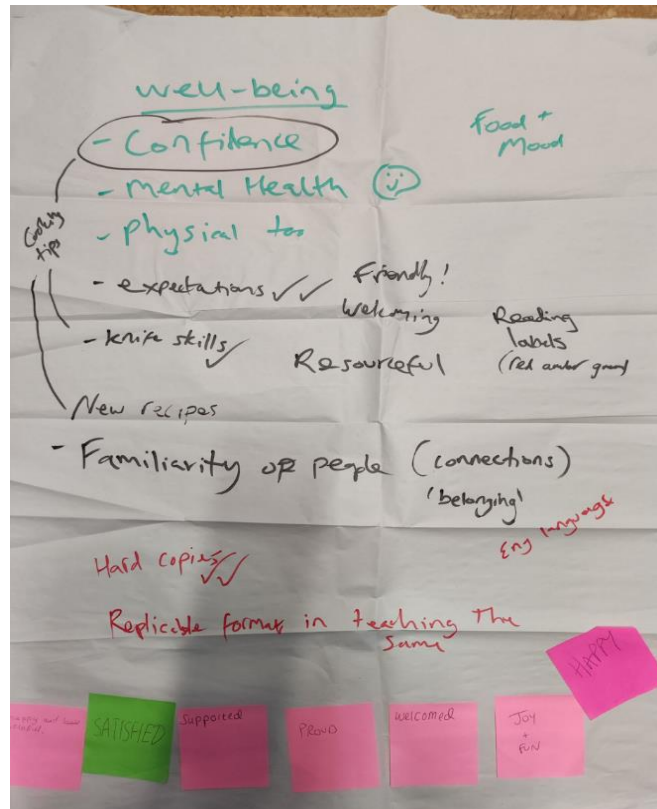 well-being
- Confidence
Food +
Mood
- Mental Health
Cooking
tips
- Physical too
- expectations ✓✓
Friendly!
Welcoming
- knife skills ✓
Resourceful
Reading
labels
(red amber green)
New recipes
- Familiarity of people (connections)
'belonging'
Eng language
Hard copies ✓✓
Replicable format in teaching the
same
HAPPY
SATISFIED
Supported
PROUD
welcomed
JOY
+
FUN